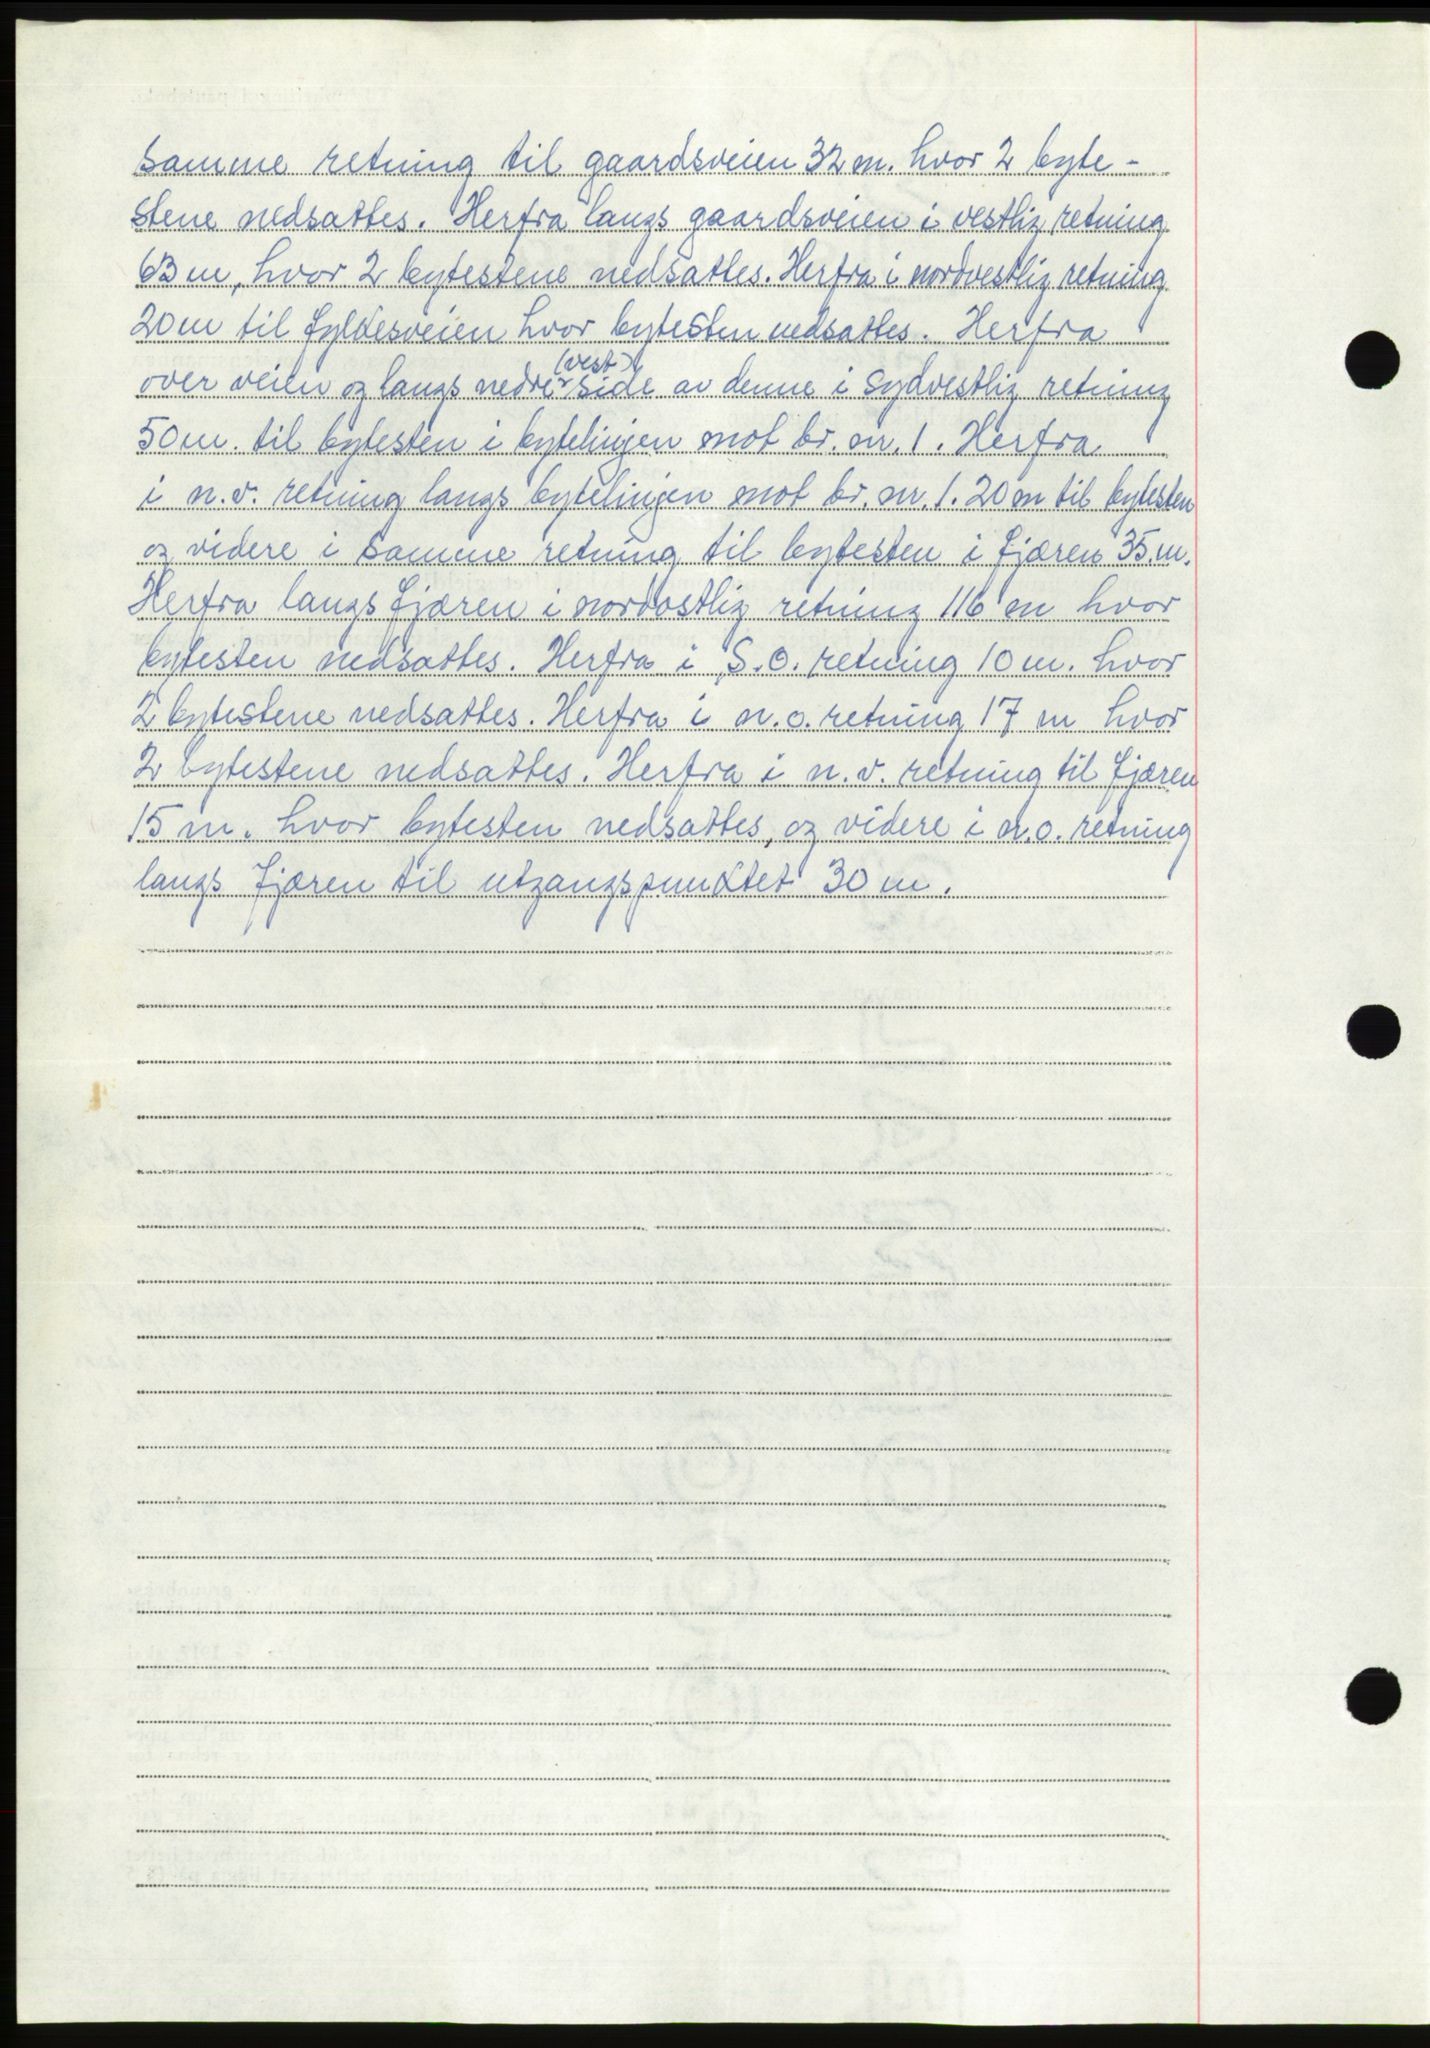 samme retning til gaardsveien 32 m. hvor 2 byte-
stene nedsattes. Herfra langs gaardsveien i vestlig retning
63 m, hvor 2 bytestene nedsattes. Herfra i nordvestlig retning
20 m til fyldesveien hvor bytesten nedsattes. Herfra
(vest)
over veien og langs nedre side av denne i sydvestlig retning
50 m. til bytesten i bytelinjen mot br. nr. 1. Herfra
i n.v. retning langs bytelinjen mot br. nr. 1. 20 m til bytesten
og videre i samme retning til bytesten i fjæren 35 m.
Herfra langs fjæren i nordostlig retning 116 m hvor
bytesten nedsattes. Herfra i S.O. retning 10 m. hvor
2 bytestene nedsattes. Herfra i n.o. retning 17 m hvor
2 bytestene nedsattes. Herfra i n.v. retning til fjæren
15 m. hvor bytesten nedsattes, og videre i n.o. retning
langs fjæren til utgangspunktet 30 m.